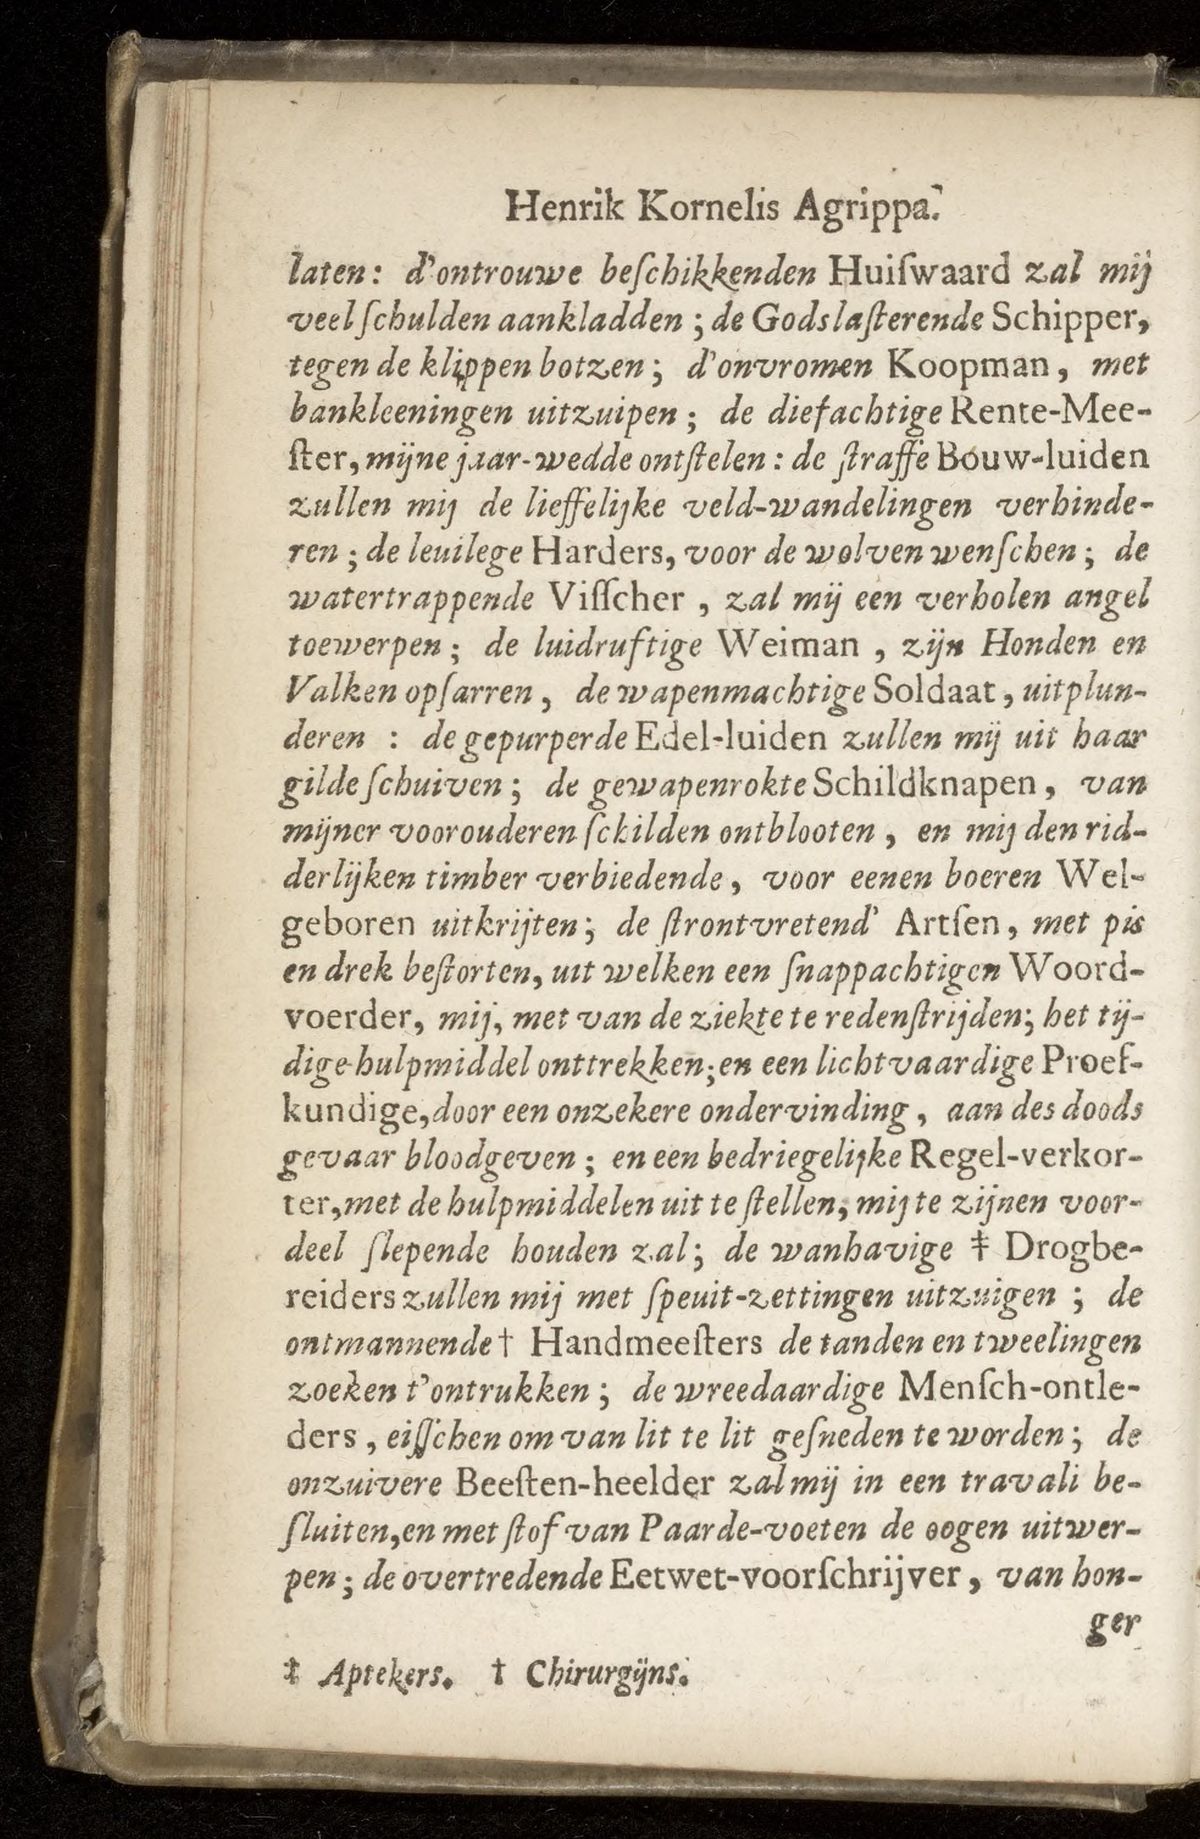 Henrik Kornelis Agrippa.
laten: d'ontrouwe beſchikkenden Huiſwaard zal mij
veel ſchulden aankladden; de Godslaſterende Schipper,
tegen de klippen botzen; d'onvromen Koopman, met
bankleeningen uitzuipen; de diefachtige Rente-Mee-
ſter, mijne jaar-wedde ontſtelen: de ſtraffe Bouw-luiden
zullen mij de lieffelijke veld-wandelingen verhinde-
ren; de leuilege Harders, voor de wolven wenſchen; de
watertrappende Viſſcher, zal mij een verholen angel
toewerpen; de luidruftige Weiman, zijn Honden en
Valken opſarren, de wapenmachtige Soldaat, uitplun-
deren : de gepurperde Edel-luiden zullen mij uit haar
gilde ſchuiven; de gewapenrokte Schildknapen, van
mijner voorouderen ſchilden ontblooten, en mij den rid-
derlijken timber verbiedende, voor eenen boeren Wel-
geboren uitkrijten; de ſtrontvretend' Artſen, met pis
en drek beſtorten, uit welken een ſnappachtigen Woord-
voerder, mij, met van de ziekte te redenſtrijden; het tij-
dige hulpmiddel onttrekken; en een lichtvaardige Proef-
kundige, door een onzekere ondervinding, aan des doods
gevaar bloodgeven; en een bedriegelijke Regel-verkor-
ter, met de hulpmiddelen uit te ſtellen, mij te zijnen voor-
deel ſlepende houden zal; de wanhavige ‡ Drogbe-
reiders zullen mij met ſpeuit-zettingen uitzuigen; de
ontmannende † Handmeeſters de tanden en tweelingen
zoeken t'ontrukken; de wreedaardige Menſch-ontle-
ders, eiſſchen om van lit te lit geſneden te worden; de
onzuivere Beeſten-heelder zal mij in een travali be-
ſluiten, en met ſtof van Paarde-voeten de oogen uitwer-
pen; de overtredende Eetwet-voorſchrijver, van hon-
ger
‡ Aptekers. † Chirurgijns.